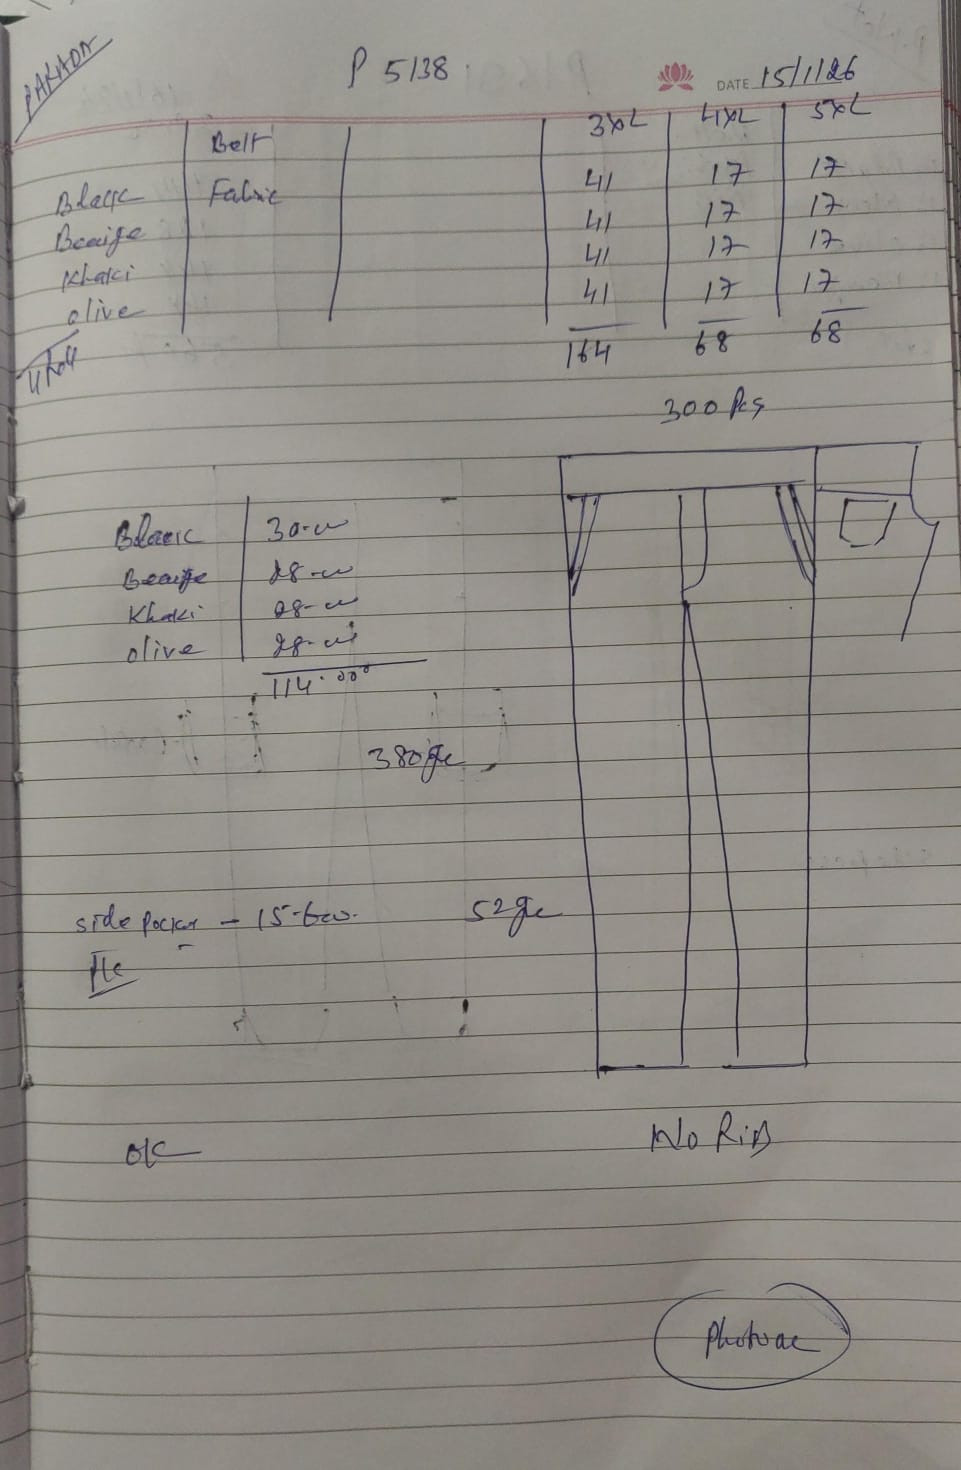 PARADA
P 5138
DATE 15/1/26
3XL 4XL 5XL
Belt
Black Fabric 41 17 17
Beaige 41 17 17
Khaki 41 17 17
olive 41 17 17
164 68 68
300 Pcs
Black 30-00
Beaige 28-00
Khaki 28-00
olive 28-00
114.000
380 gm
side pocket - 15-600. 52 gm
OK
NO RIB